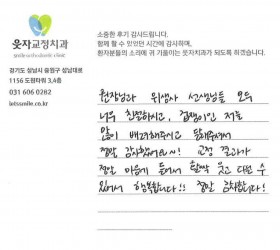 웃자교정치과
smile orthodontic clinic
경기도 성남시 중원구 성남대로
1156 도원파워 3,4층
031 606 0282
letssmile.co.kr
소중한 후기 감사드립니다.
함께 할 수 있었던 시간에 감사하며,
환자분들의 소리에 귀 기울이는 웃자치과가 되도록 하겠습니다.
원장님과 위생사 선생님들 모두
너무 친절하시고, 겁쟁이인 저를
많이 배려해주시고 도와주셔서
정말 감사합니다!! 교정 결과가
정말 마음에 들어서 활짝 웃고 다닐 수
있어서 행복합니다!! 정말 감사합니다!